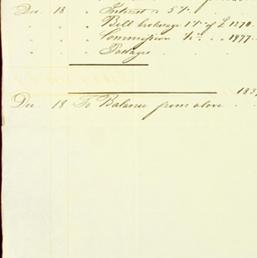 Dec 18 " Interest @ 5%.
" " " Bill brokerage 1‰ of £ 1270.
" " " Commission ½% .. 1977..
" " " Postages
183
Dec 18 To Balance from above . .